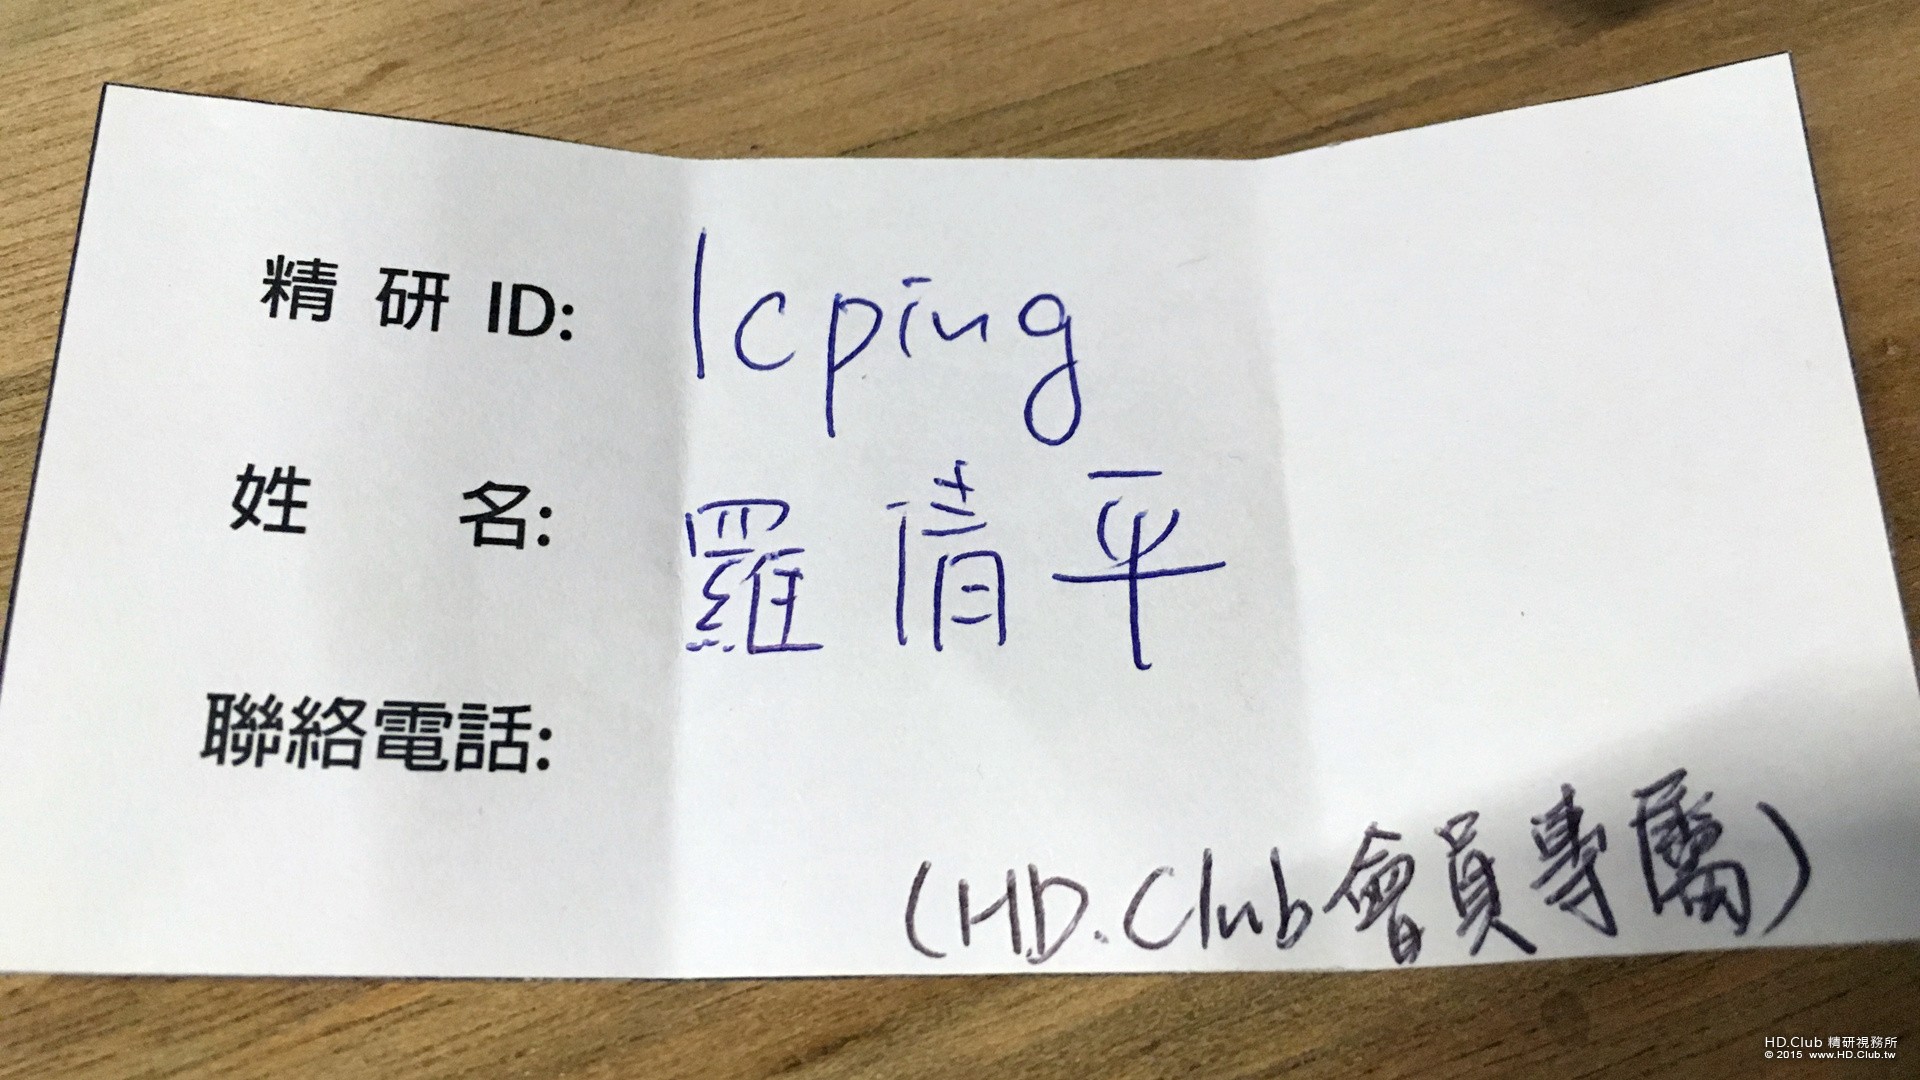 精 研 ID: lcping
姓 名: 羅清平
聯絡電話:
(HD.Club會員專屬)
HD.Club 精研視務所
© 2015 www.HD.Club.tw